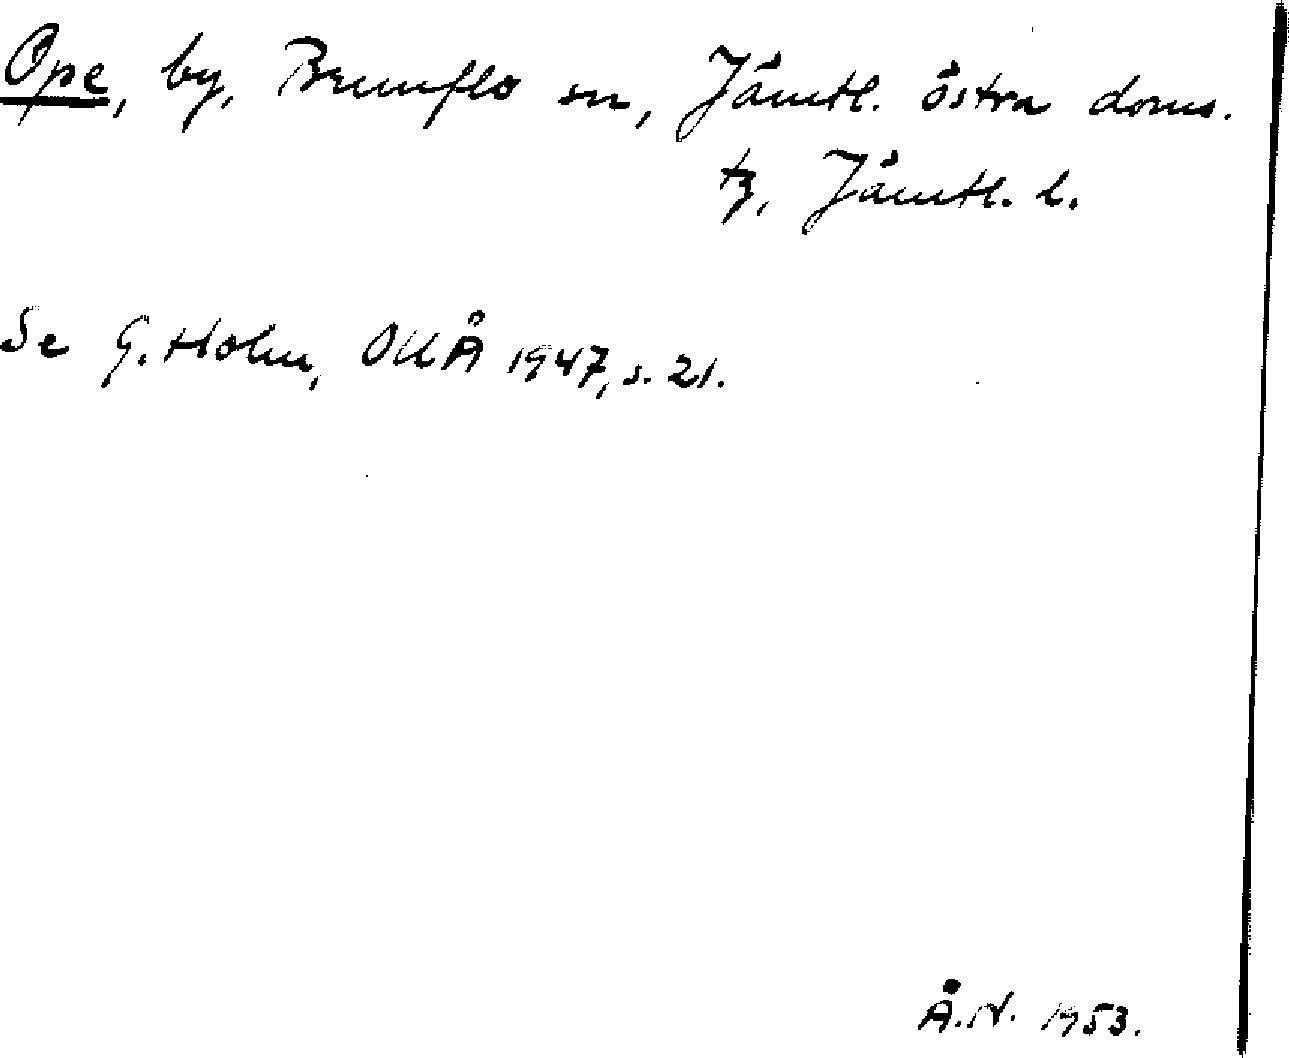 Ope, by, Brunflo sn, Jämtl. östra doms.
tg, Jämtl. l.
Se G. Holm, OUÅ 1947, s. 21.
Å.N. 1953.